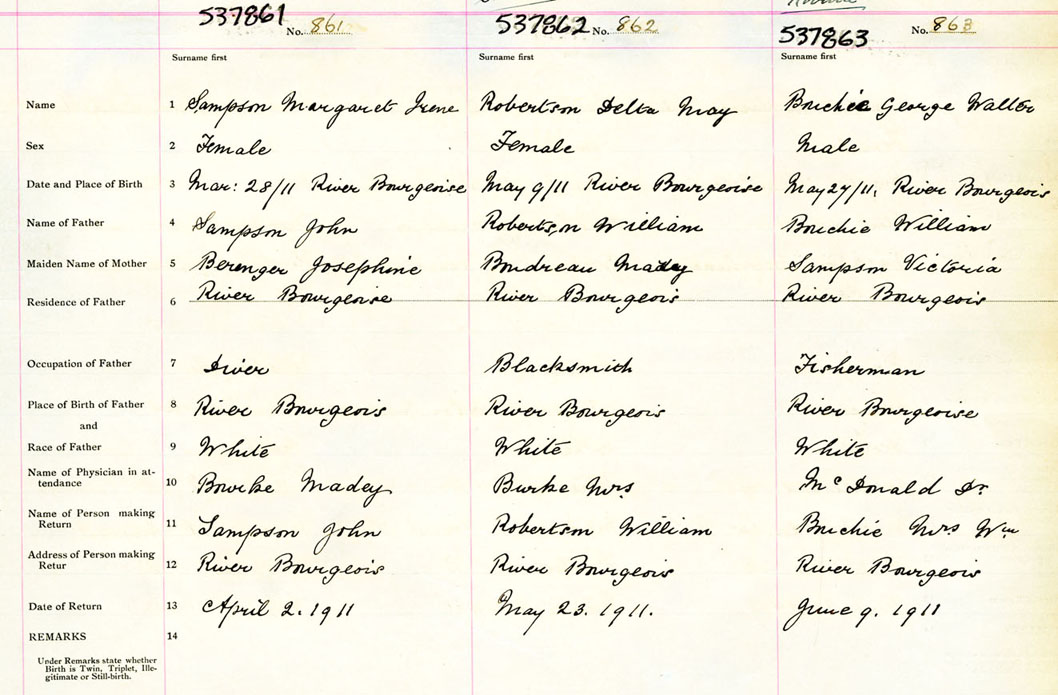 537861 No. 861 537862 No. 862 537863 No. 863
Surname first Surname first Surname first
Name 1 Sampson Margaret Irene Robertson Delta May Brichie George Walter
Sex 2 Female Female Male
Date and Place of Birth 3 Mar: 28/11 River Bourgeoise May 9/11 River Bourgeoise May 27/11, River Bourgeois
Name of Father 4 Sampson John Robertson William Brichie William
Maiden Name of Mother 5 Berenger Josephine Boudreau Madey Sampson Victoria
Residence of Father 6 River Bourgeoise River Bourgeois River Bourgeois
Occupation of Father 7 Diver Blacksmith Fisherman
Place of Birth of Father 8 River Bourgeois River Bourgeois River Bourgeoise
and
Race of Father 9 White White White
Name of Physician in at-
tendance 10 Bourke Madey Burke Mrs McDonald Dr
Name of Person making
Return 11 Sampson John Robertson William Brichie Mrs Wm
Address of Person making
Retur 12 River Bourgeois River Bourgeois River Bourgeois
Date of Return 13 April 2. 1911 May 23. 1911. June 9. 1911
REMARKS 14
Under Remarks state whether
Birth is Twin, Triplet, Ille-
gitimate or Still-birth.